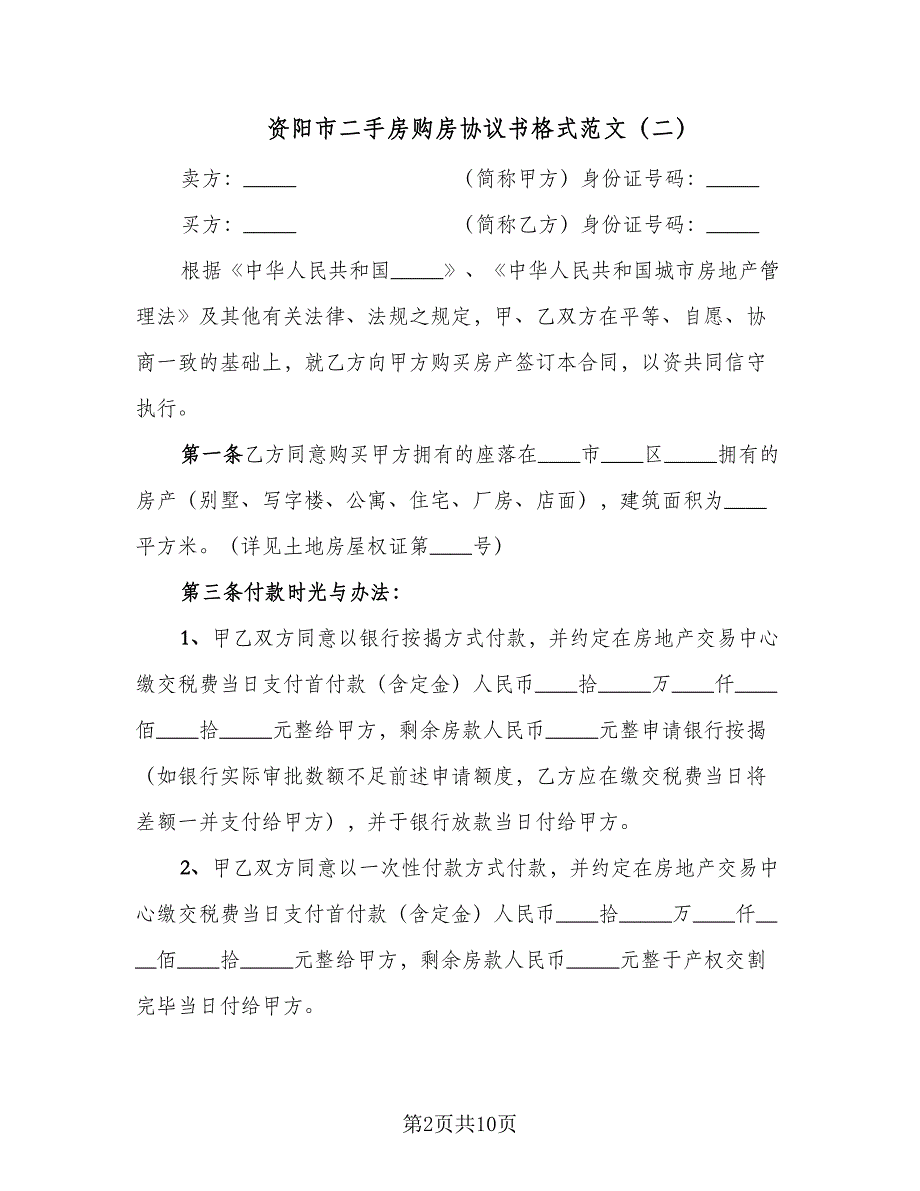 资阳市二手房购房协议书格式范文（二）
卖方：_____ （简称甲方）身份证号码：_____
买方：_____ （简称乙方）身份证号码：_____
根据《中华人民共和国_____》、《中华人民共和国城市房地产管
理法》及其他有关法律、法规之规定，甲、乙双方在平等、自愿、协
商一致的基础上，就乙方向甲方购买房产签订本合同，以资共同信守
执行。
第一条乙方同意购买甲方拥有的座落在____市____区_____拥有的
房产（别墅、写字楼、公寓、住宅、厂房、店面），建筑面积为____
平方米。（详见土地房屋权证第____号）
第三条付款时光与办法：
1、甲乙双方同意以银行按揭方式付款，并约定在房地产交易中心
缴交税费当日支付首付款（含定金）人民币____拾_____万____仟____
佰____拾_____元整给甲方，剩余房款人民币_____元整申请银行按揭
（如银行实际审批数额不足前述申请额度，乙方应在缴交税费当日将
差额一并支付给甲方），并于银行放款当日付给甲方。
2、甲乙双方同意以一次性付款方式付款，并约定在房地产交易中
心缴交税费当日支付首付款（含定金）人民币____拾_____万____仟__
__佰____拾_____元整给甲方，剩余房款人民币_____元整于产权交割
完毕当日付给甲方。
第2页共10页